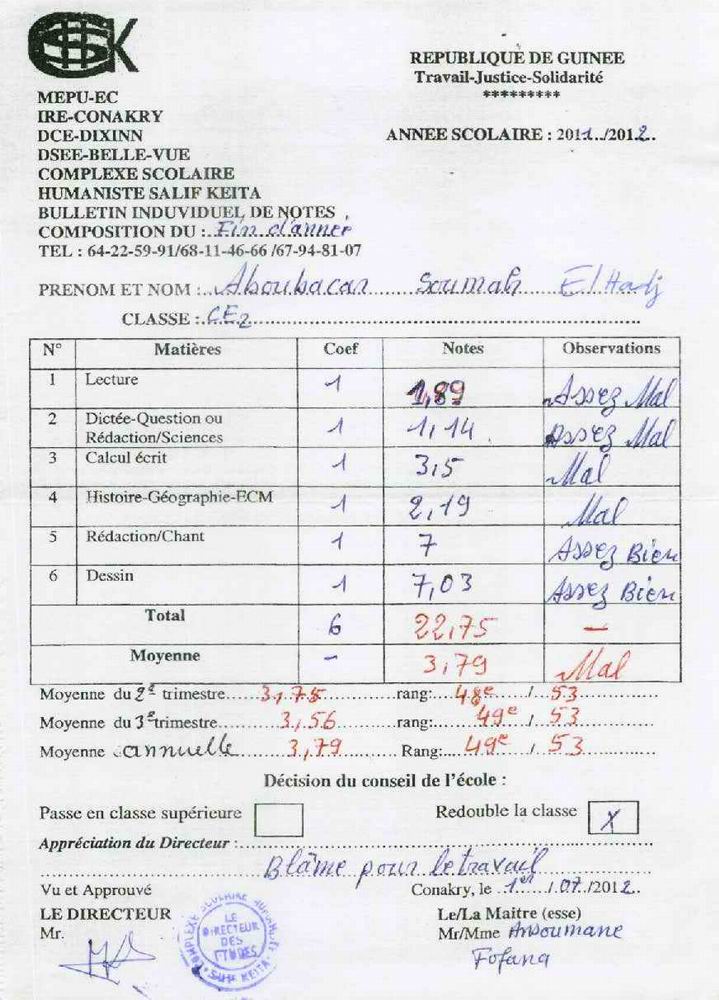 GSHSK
REPUBLIQUE DE GUINEE
Travail-Justice-Solidarité
*********
MEPU-EC
IRE-CONAKRY
DCE-DIXINN
ANNEE SCOLAIRE : 2011../2012..
DSEE-BELLE-VUE
COMPLEXE SCOLAIRE
HUMANISTE SALIF KEITA
BULLETIN INDUVIDUEL DE NOTES
COMPOSITION DU : Fin d'anner
TEL : 64-22-59-91/68-11-46-66 /67-94-81-07
PRENOM ET NOM : Aboubacar Soumah El Hadj
CLASSE : CE2
N° Matières Coef Notes Observations
1 Lecture 1 1,89 Assez Mal
2 Dictée-Question ou Rédaction/Sciences 1 1,14 Assez Mal
3 Calcul écrit 1 3,5 Mal
4 Histoire-Géographie-ECM 1 2,19 Mal
5 Rédaction/Chant 1 7 Assez Bien
6 Dessin 1 7,03 Assez Bien
Total 6 22,75 –
Moyenne - 3,79 Mal
Moyenne du 2e trimestre 3,75 rang: 48e / 53
Moyenne du 3e trimestre 3,56 rang: 49e / 53
Moyenne annuelle 3,79 Rang: 49e / 53
Décision du conseil de l'école :
Passe en classe supérieure Redouble la classe X
Appréciation du Directeur :
Blâme pour le travail
Vu et Approuvé Conakry, le 1er / 07 /2012.
LE DIRECTEUR Le/La Maitre (esse)
Mr. Mr/Mme Ansoumane
Fofana
LE
DIRECTEUR
DES
ETUDES
SALIF KEITA